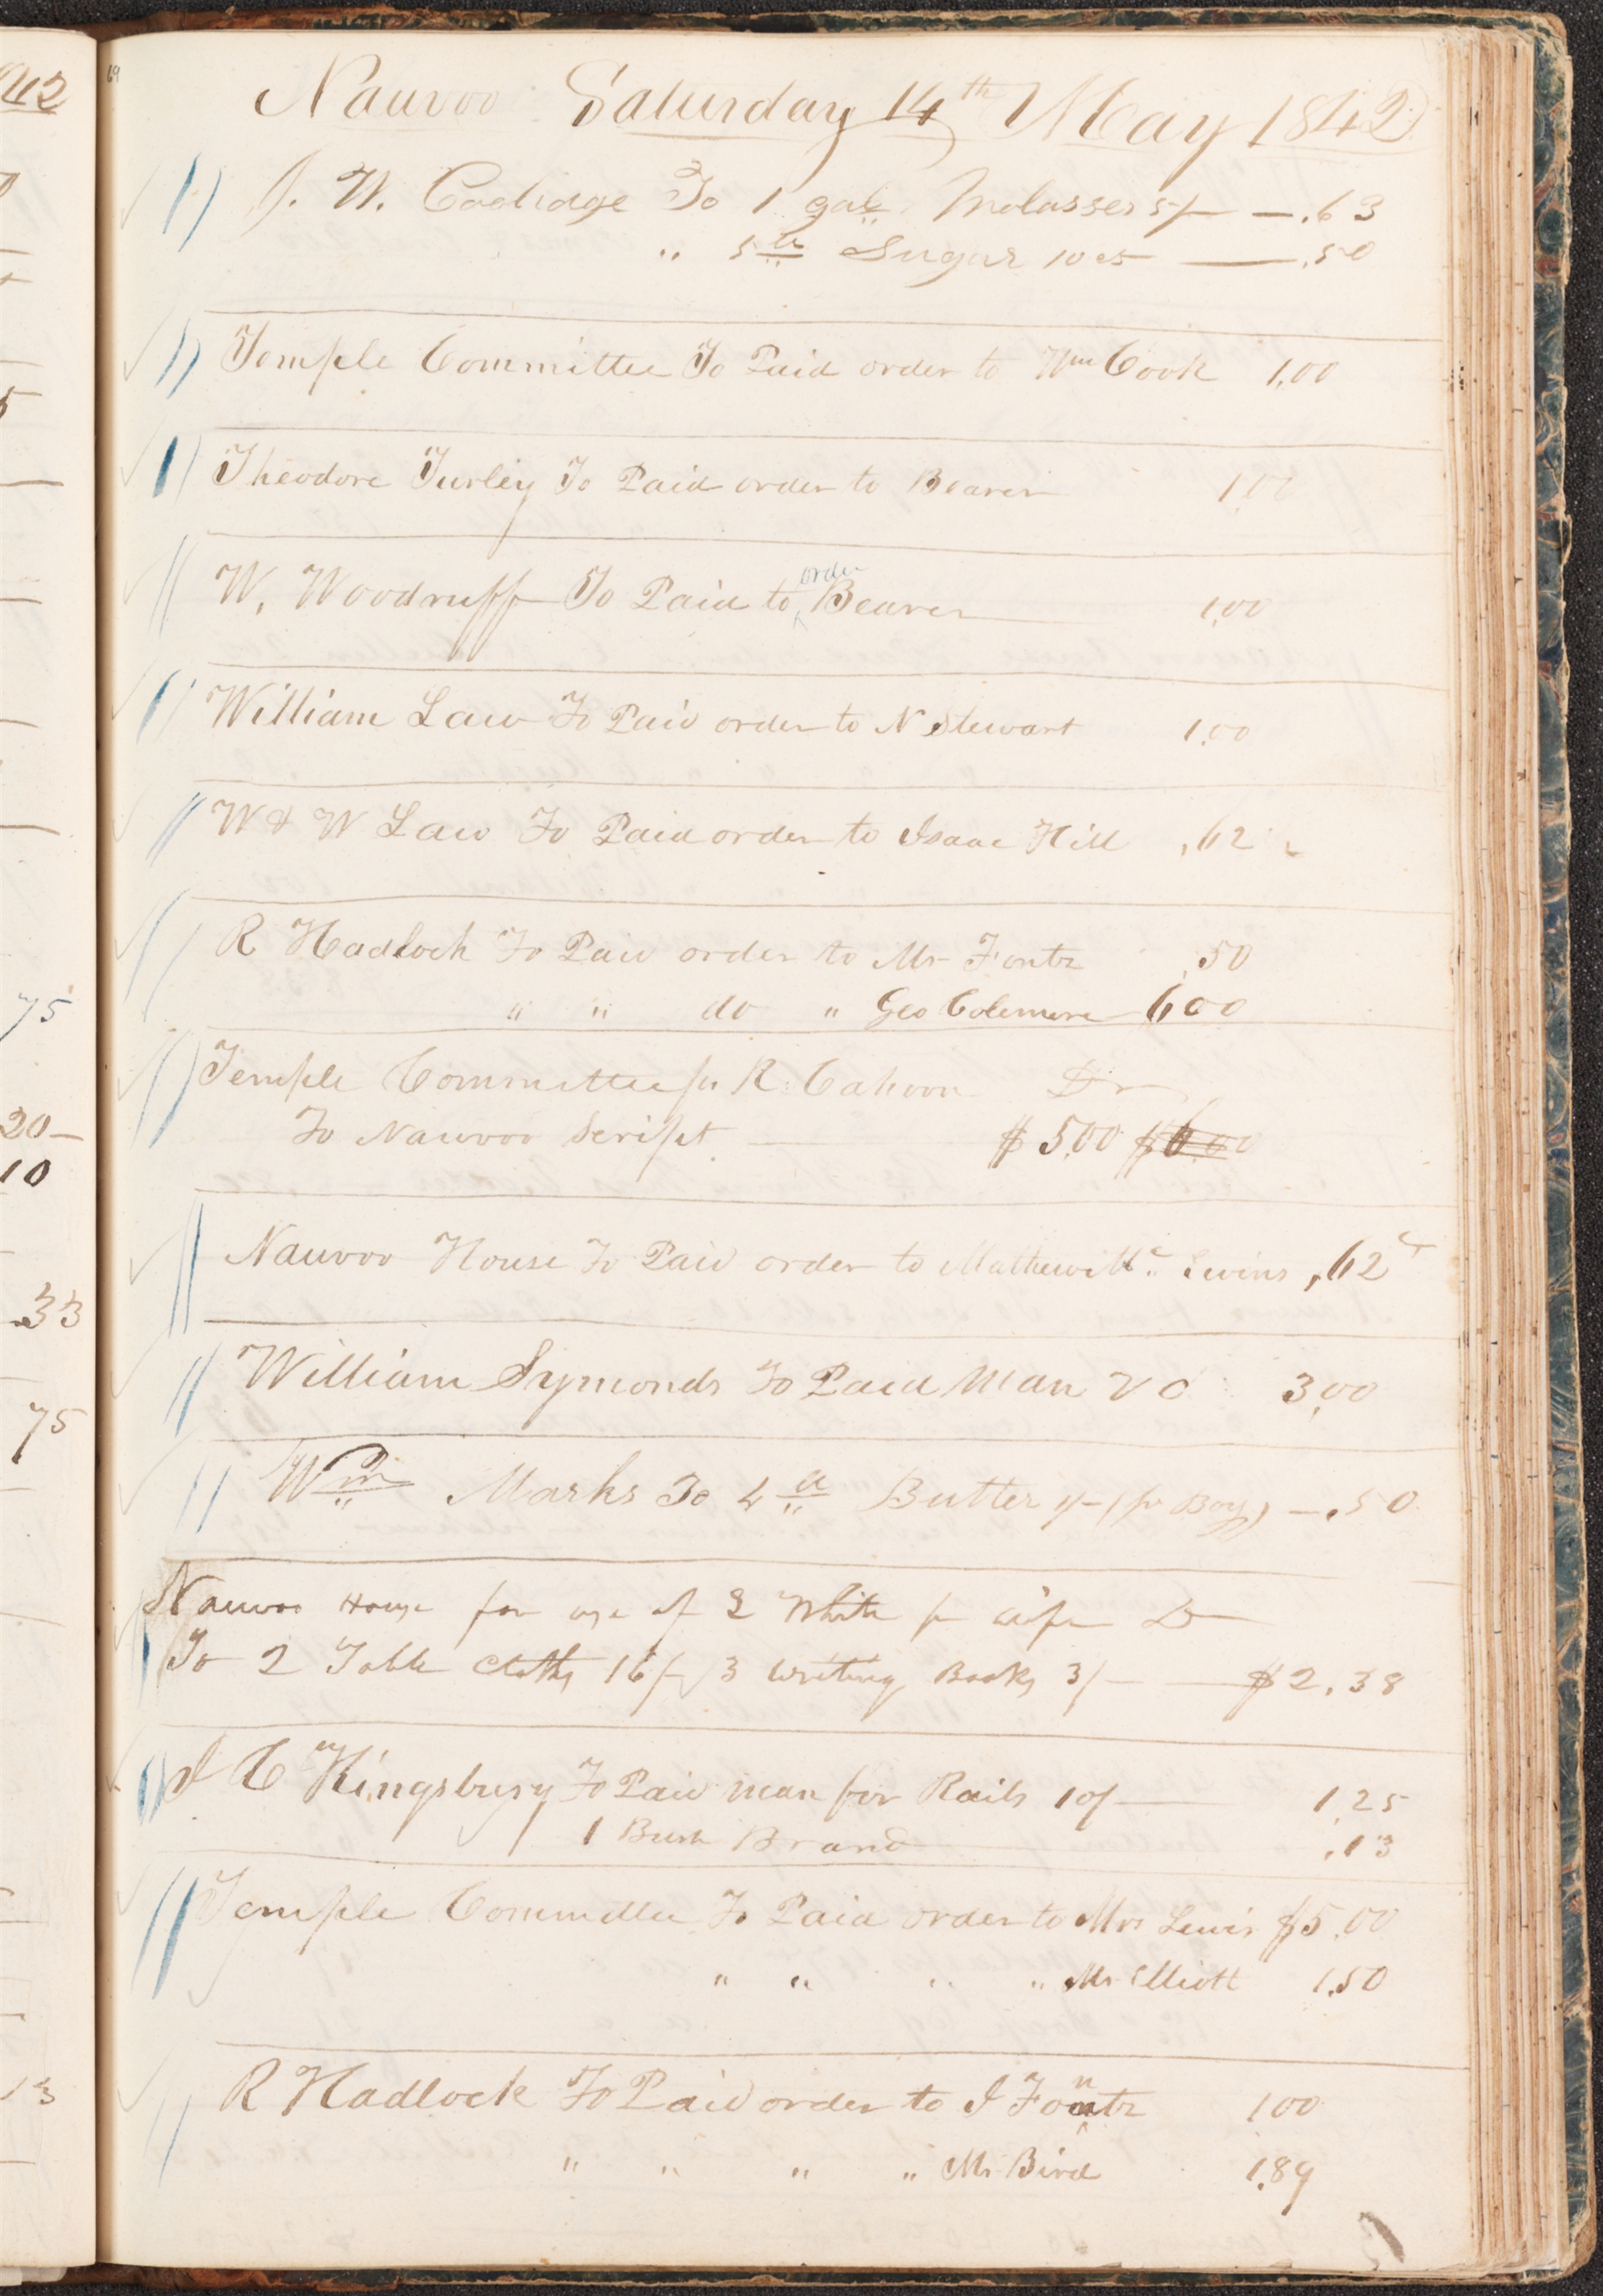 42
69
Nauvoo Saturday 14th May 1842
J. W. Coolidge To 1 gal. Molasses 5/— —.63
" 5 lb Sugar 10 cs —.50
Temple Committee To Paid order to Wm Cook 1.00
Theodore Turley To Paid order to Bearer 1.00
order
W. Woodruff To Paid to ^ Bearer 1.00
William Law To Paid order to N Stewart 1.00
W & W Law To Paid order to Isaac Hill ,62
R Hadlock To Paid order to Mr Fontz .50
" " do " Geo Colemere 6 00
75
Temple Committee pr R. Cahoon Dr
To Nauvoo Script — $ 5.00 $6.00
20—
10
Nauvoo House To Paid order to Mathew Mc. Ewins ,62
.33
William Symonds To Paid Man 3.00
75
Wm Marks To 4 lb Butter 1/— (pr Boy) —.50
Nauvoo House for use of L White pr wife Dr
To 2 Table Cloths 16/— 3 Writing Books 3/— — $2.38
J C Kingsbury To Paid man for Rails 10/— 1.25
1 Bush Brand .13
Temple Committee To Paid order to Mrs Lewis $5.00
" " " " Mr Elliott 1.50
13
R Hadlock To Paid order to J Fontz 1 00
" " " " Mr Bird 1.89